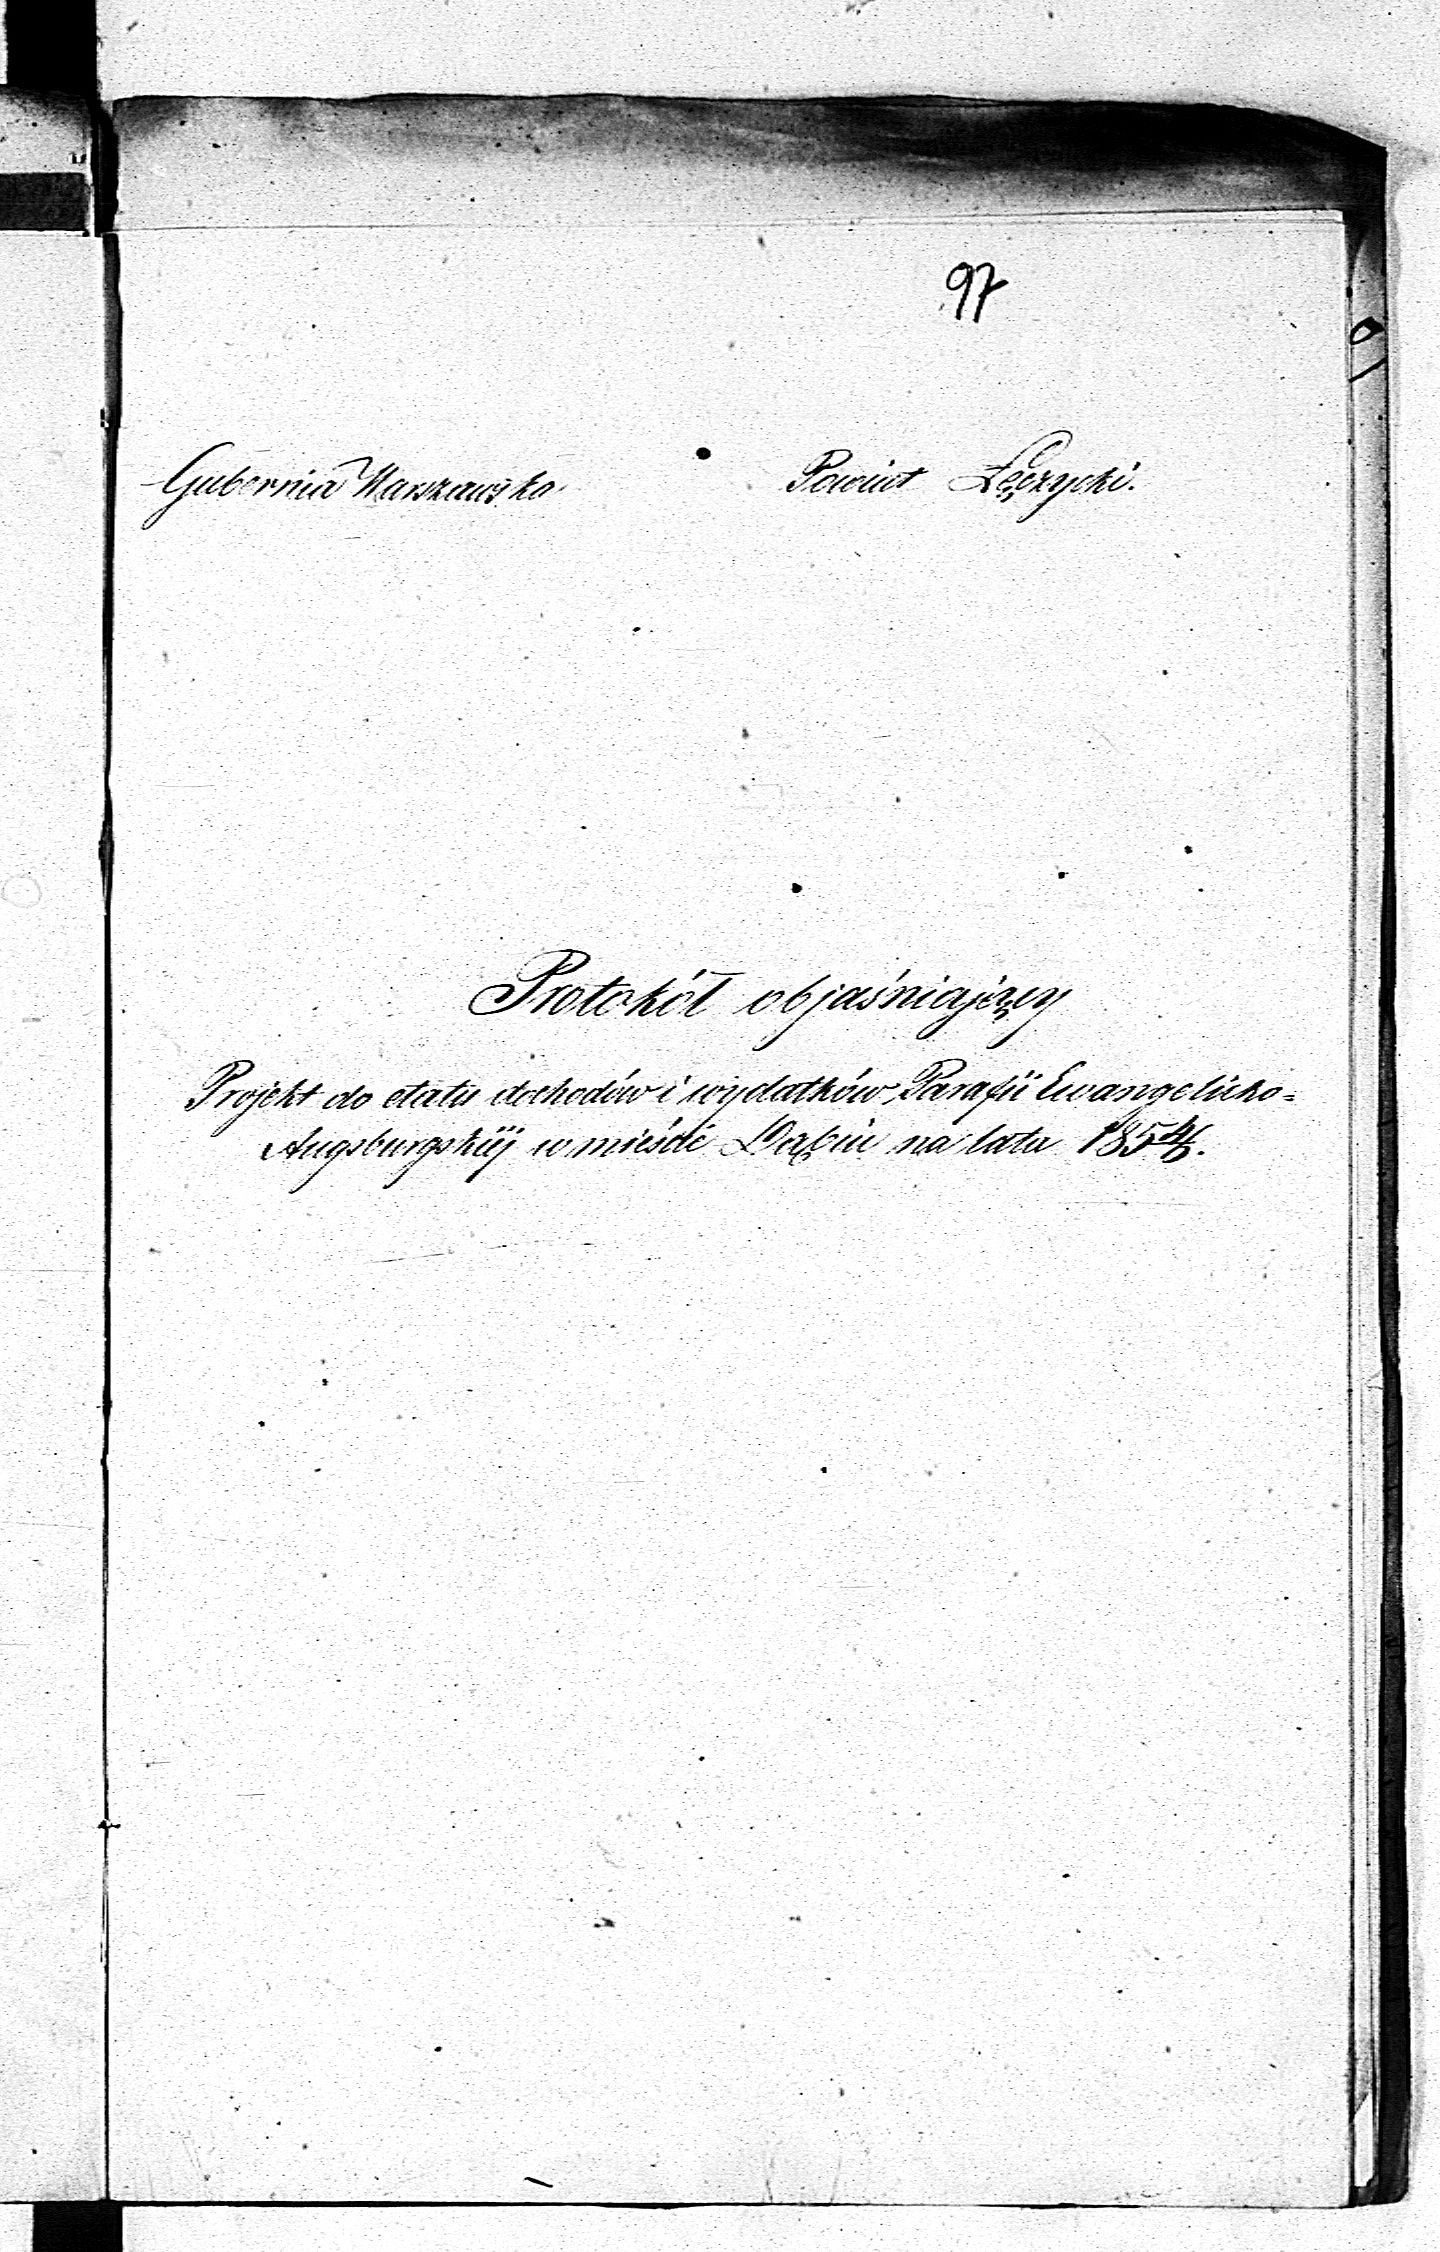 97
Gubernia Warszawska Powiat Łęczycki.
Protokół objaśniający
Projekt do etatu dochodów i wydatków Parafii Ewangelicko=
Augsburgskiej w mieście Dąbiu na lata